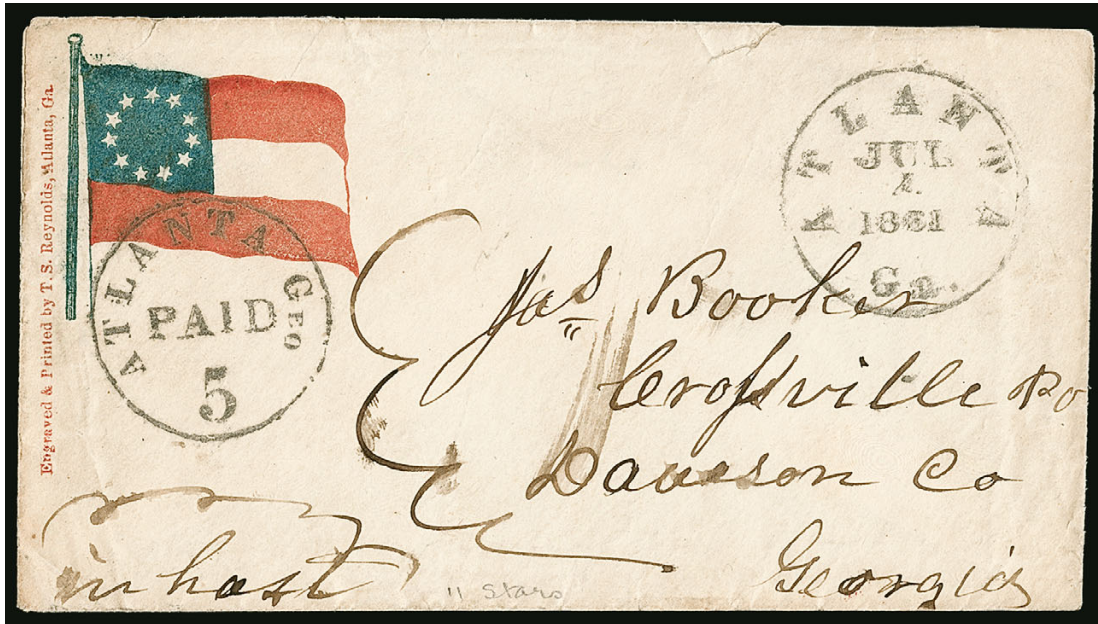 Engraved & Printed by T. S. Reynolds, Atlanta, Ga.
ATLANTA GEO
PAID
5
ATLANTA
JUL
1861
Ga.
Jas Booker
Crossville Po
Dawson Co
Georgia
in hast
11 Stars